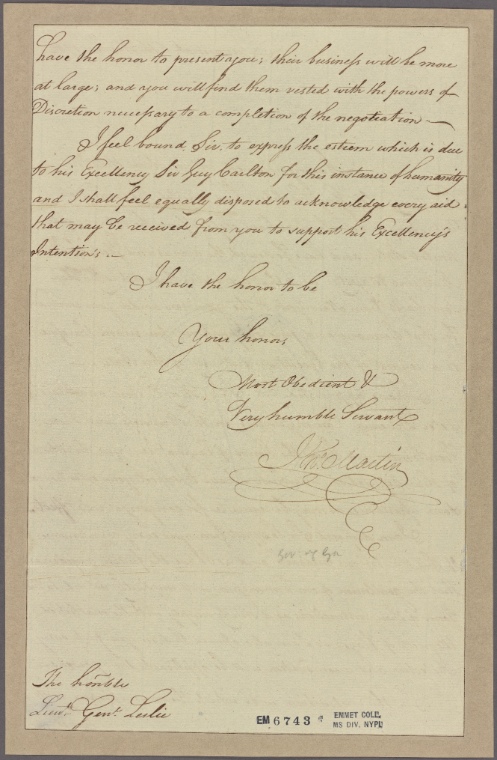 have the honor to present you; their business will be more
at large; and you will find them vested with the powers of
Discretion necessary to a completion of the negotiation —
I feel bound, Sir, to express the esteem which is due
to his Excellency Sir Guy Carlton for this instance of humanity
and I shall feel equally disposed to acknowledge every aid
that may be received from you to support his Excellency's
Intention's —
I have the honor to be
Your honors
Most Obedient &
Very humble Servant
Jno. Martin
Gov. of Ga.
The honble
Lieut. Genl. Leslie
EM 6743
EMMET COLL.
MS DIV. NYPL